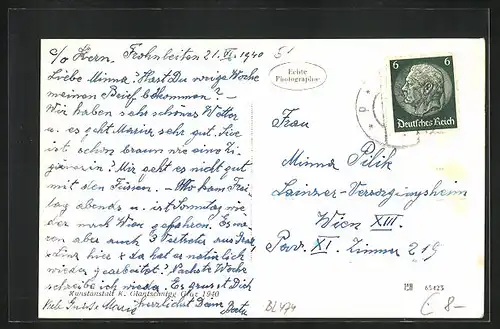 c/o Kern. Frohnleiten 21. VI. 1940
Liebe Minna! Hast Du vorige Woche
meinen Brief bekommen? –
Wir haben sehr schönes Wetter
u. es geht sehr gut. Sie
ist schon braun wie eine Zi-
geunerin! Mir geht es nicht gut
mit den Füssen. – Otto kam Frei-
tag abends u. ist Sonntag wie-
der nach Wien gefahren. Es wa-
ren aber auch 3 Vertreter aus
hier & da hat er natürlich
wieder gearbeitet! Nächste Woche
schreibe ich wieder. Es grüsst Dich
herzlichst Deine
Kunstanstalt K. Glantschnigg Graz 1940
Echte
Photographie
6 6
Deutsches Reich
Frau
Minna Pilik
Lainzer-Versorgungsheim
Wien XIII.
Pav. XI. Zimmer 219
65423
BL474
€ 8-